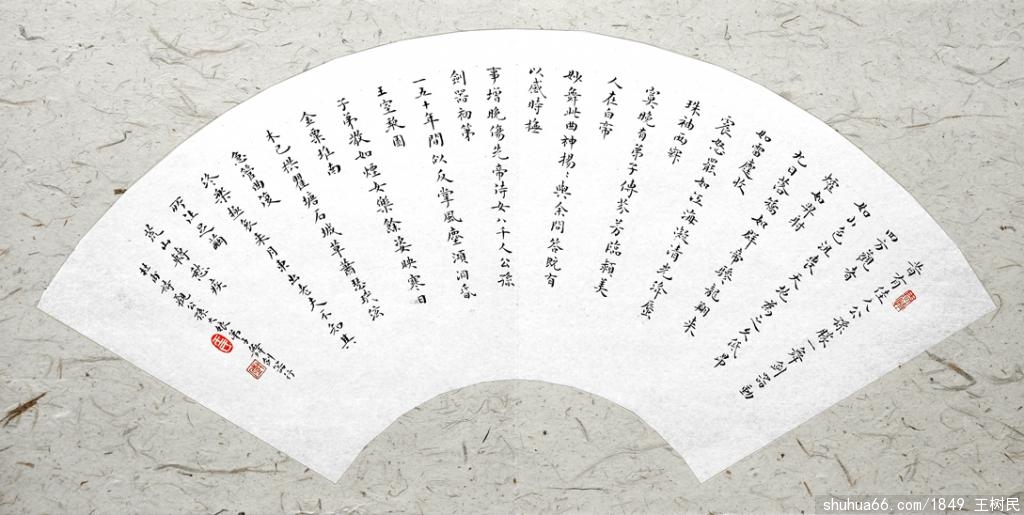 昔有佳人公孫氏一舞劍器動
四方觀者
如山色沮喪天地為之久低昂
㸌如羿射
九日落矯如群帝驂龍翔來
如雷霆收
震怒罷如江海凝清光絳唇
珠袖兩寂
寞晚有弟子傳芬芳臨潁美
人在白帝
妙舞此曲神揚〻與余問答既有
以感時撫
事增惋傷先帝侍女八千人公孫
劍器初第
一五十年間似反掌風塵澒洞昏
王室梨園
子弟散如煙女樂餘姿映寒日
金粟堆南
木已拱瞿塘石城草蕭瑟玳弦
急管曲復
終樂極哀來月東出老夫不知其
所往足繭
荒山轉愁疾
杜甫詩觀公孫大娘弟子舞劍器行
shuhua66.com/1849 王树民